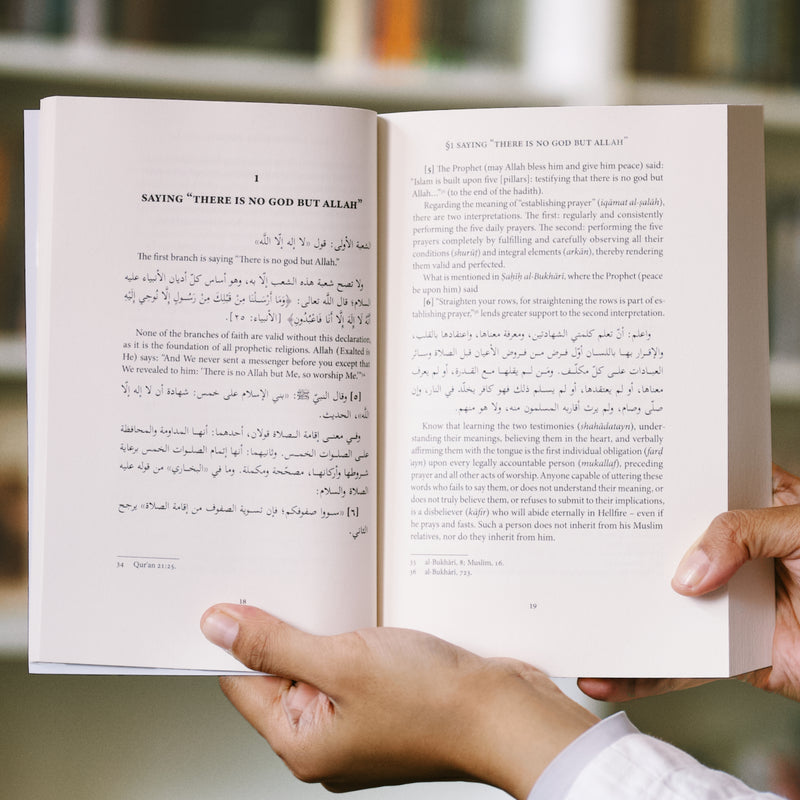 1
SAYING “THERE IS NO GOD BUT ALLAH”
الشعبة الأولى: قول «لا إله إلّا الله»
The first branch is saying “There is no god but Allah.”
ولا تصح شعبة هذه الشعب إلّا به، وهو أساس كلّ أديان الأنبياء عليه
السلام؛ قال الله تعالى: ﴿وَمَا أَرْسَلْنَا مِنْ قَبْلِكَ مِنْ رَسُولٍ إِلَّا نُوحِي إِلَيْهِ
أَنَّهُ لَا إِلَهَ إِلَّا أَنَا فَاعْبُدُونِ﴾ [الأنبياء: ٢٥].
None of the branches of faith are valid without this declaration,
as it is the foundation of all prophetic religions. Allah (Exalted is
He) says: “And We never sent a messenger before you except that
We revealed to him: ‘There is no Allah but Me, so worship Me.’”³⁴
[٥] وقال النبيّ ﷺ: «بني الإسلام على خمس: شهادة أن لا إله إلّا
الله»، الحديث.
وفي معنى إقامة الصلاة قولان، أحدهما: أنها المداومة والمحافظة
على الصلوات الخمس. وثانيهما: أنها إتمام الصلوات الخمس برعاية
شروطها وأركانها، مصحّحة ومكملة. وما في «البخاري» من قوله عليه
الصلاة والسلام:
[٦] «سووا صفوفكم؛ فإن تسوية الصفوف من إقامة الصلاة» يرجح
الثاني.
34 Qur'an 21:25.
18
§1 SAYING “THERE IS NO GOD BUT ALLAH”
[5] The Prophet (may Allah bless him and give him peace) said:
“Islam is built upon five [pillars]: testifying that there is no god but
Allah…”³⁵ (to the end of the hadith).
Regarding the meaning of “establishing prayer” (iqāmat al-ṣalāh),
there are two interpretations. The first: regularly and consistently
performing the five daily prayers. The second: performing the five
prayers completely by fulfilling and carefully observing all their
conditions (shurūṭ) and integral elements (arkān), thereby rendering
them valid and perfected.
What is mentioned in Ṣaḥīḥ al-Bukhārī, where the Prophet (peace
be upon him) said
[6] “Straighten your rows, for straightening the rows is part of es-
tablishing prayer,”³⁶ lends greater support to the second interpretation.
واعلم: أنّ تعلم كلمتي الشهادتين، ومعرفة معناها، واعتقادها بالقلب،
والإقرار بهما باللسان أوّل فرض من فروض الأعيان قبل الصلاة وسائر
العبادات على كلّ مكلّف. ومَن لم يقلها مع القدرة، أو لم يعرف
معناها، أو لم يعتقدها، أو لم يسلم ذلك فهو كافر يخلّد في النار، وإن
صلّى وصام، ولم يرث أقاربه المسلمون منه، ولا هو منهم.
Know that learning the two testimonies (shahādatayn), under-
standing their meanings, believing them in the heart, and verbally
affirming them with the tongue is the first individual obligation (farḍ
ʿayn) upon every legally accountable person (mukallaf), preceding
prayer and all other acts of worship. Anyone capable of uttering these
words who fails to say them, or does not understand their meaning, or
does not truly believe them, or refuses to submit to their implications,
is a disbeliever (kāfir) who will abide eternally in Hellfire – even if
he prays and fasts. Such a person does not inherit from his Muslim
relatives, nor do they inherit from him.
35 al-Bukhārī, 8; Muslim, 16.
36 al-Bukhārī, 723.
19